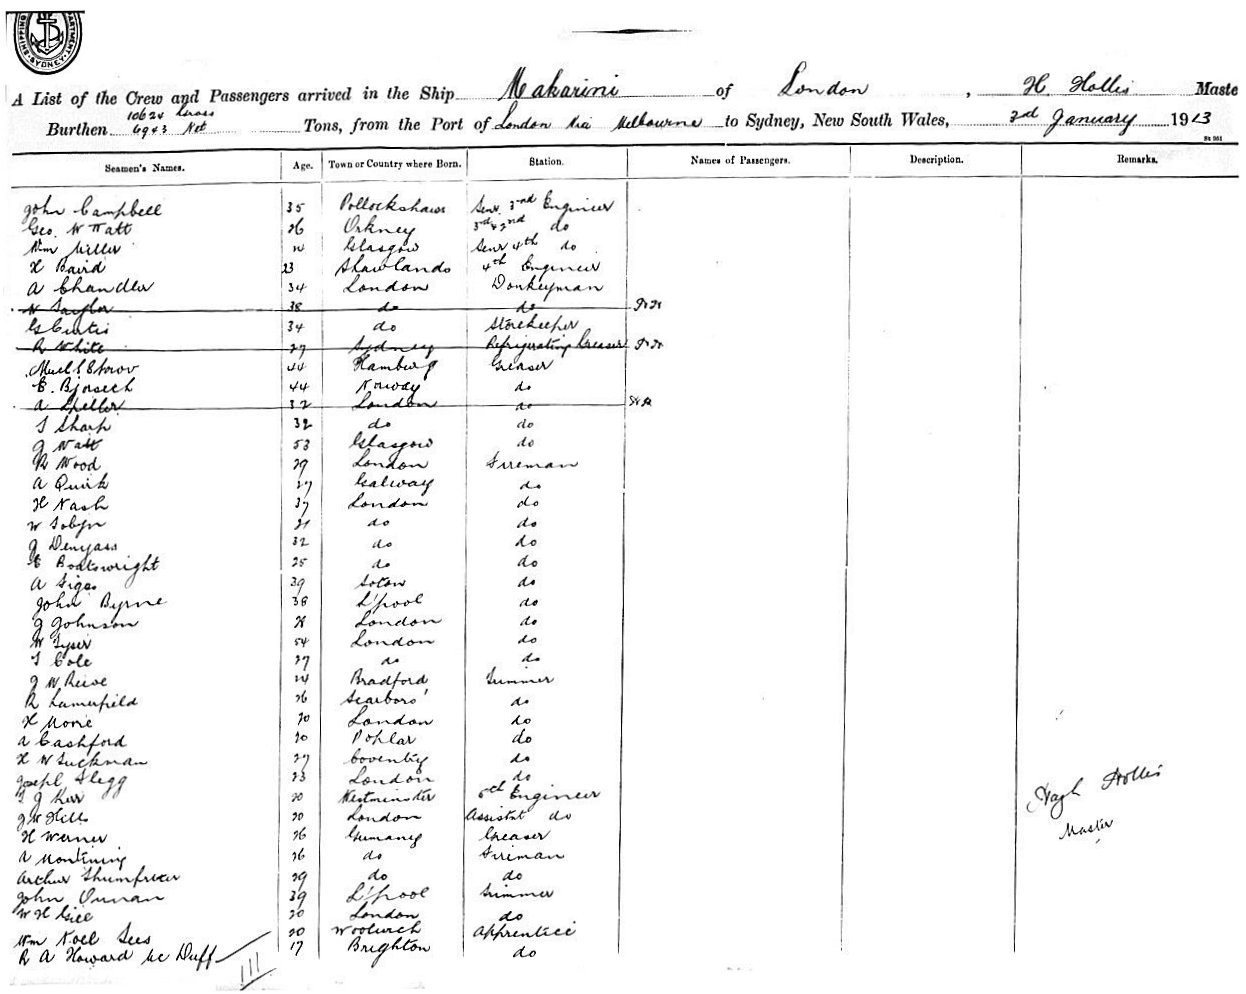 SHIPPING DEPARTMENT SYDNEY
A List of the Crew and Passengers arrived in the Ship Makarini of London, H Hollis Maste
Burthen 10624 Gross 6943 Net Tons, from the Port of London Via Melbourne to Sydney, New South Wales, 3rd January 1913
St 961
Seamen's Names. Age. Town or Country where Born. Station. Names of Passengers. Description. Remarks.
John Campbell 35 Pollockshaws Senr 3rd Engineer
Geo. W Watt 26 Orkney do
Wm Miller Glasgow Senr 4th do
H Baird 23 Shawlands 4th Engineer
A Chandler 34 London Donkeyman
W Taylor 38 do do
G Curtis 34 do Storekeeper
R White 27 Sydney Refrigerating Greaser
44 Hamburg Greaser
E. 44 Norway do
A Speller 32 London do
T Sharp 32 do do
J Watt 53 Glasgow do
R Wood 29 London Fireman
A Quirk 27 Galway do
H Nash 37 London do
W Tobyn 21 do do
J Denyass 32 do do
E Boatswright 25 do do
A 39 Soton do
John Byrne 38 L'pool do
J Johnson 28 London do
W Tyser 54 London do
T Cole 27 do do
J W Reive 24 Bradford Trimmer
R 26 Scarboro' do
H Morie 20 London do
A Cashford 20 Poplar do
H W Tuckman 27 Coventry do
Joseph Slegg 23 London do
T J Kerr 20 Westminster 5th Engineer
J W Hills 20 London Assistat do
H Werner 26 Germany Greaser
A 26 do Fireman
Arthur 29 do do
John 39 L'pool Trimmer
W H Gill 20 London do
Wm Noel Sees 20 Woolwich Apprentice
R A Howard Mc Duff 17 Brighton do
Hugh Hollis
Master